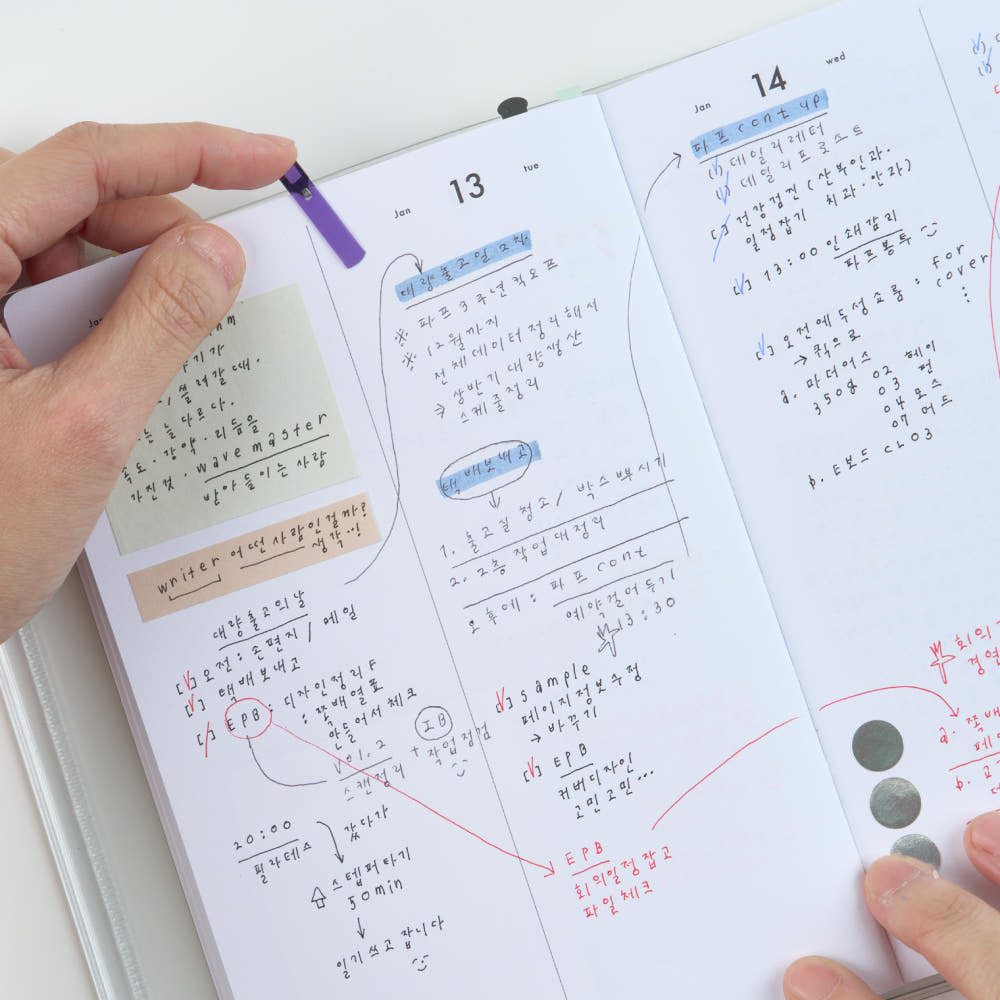 Jan
기가
/ 쓸려갈 때.
는 늘 다르다.
속도·강약·리듬을
가진 것. wave master
받아들이는 사람
writer 어떤 사람인걸까?
생각..!
대량출고의날
[V] 오전: 손편지 / 메일
[V] 택배보내고
[/] EPB : 디자인정리 F
: 쪽배열표
만들어서 체크
VOl. 2
스캔정리
+ 작업점검
IB
20:00
필라테스
갔다가
스텝퍼타기
50min
일기쓰고 잡니다
Jan 13 tue
대량출고일 2차
※ 파프 3주년 킥오프
※ 12월까지
전체데이터정리해서
⇒ 상반기 대량생산
스케줄정리
택배보내고
1. 출고실 청소 / 박스뿌시기
2. 2층 작업대정리
오후에: 파프 cont
예약걸어두기
13:30
[V] sample
페이지정보수정
→ 바꾸기
[V] EPB
커버디자인
고민고민...
EPB
회의일정잡고
파일체크
Jan 14 wed
파프 cont up
(V) 데일리레터
(V) 데일리프로스트
[/] 건강검진 (산부인과.
일정잡기 치과·안과)
[V] 13:00 인쇄감리
파프봉투
[V] 오전에두성쇼룸: for
→ 퀵으로 cover
a. 마더어스
350g 02 헤이
03 편
04 모스
07 머드
b. E보드 CL03
회의
경영
a. 쪽배
페이
b.